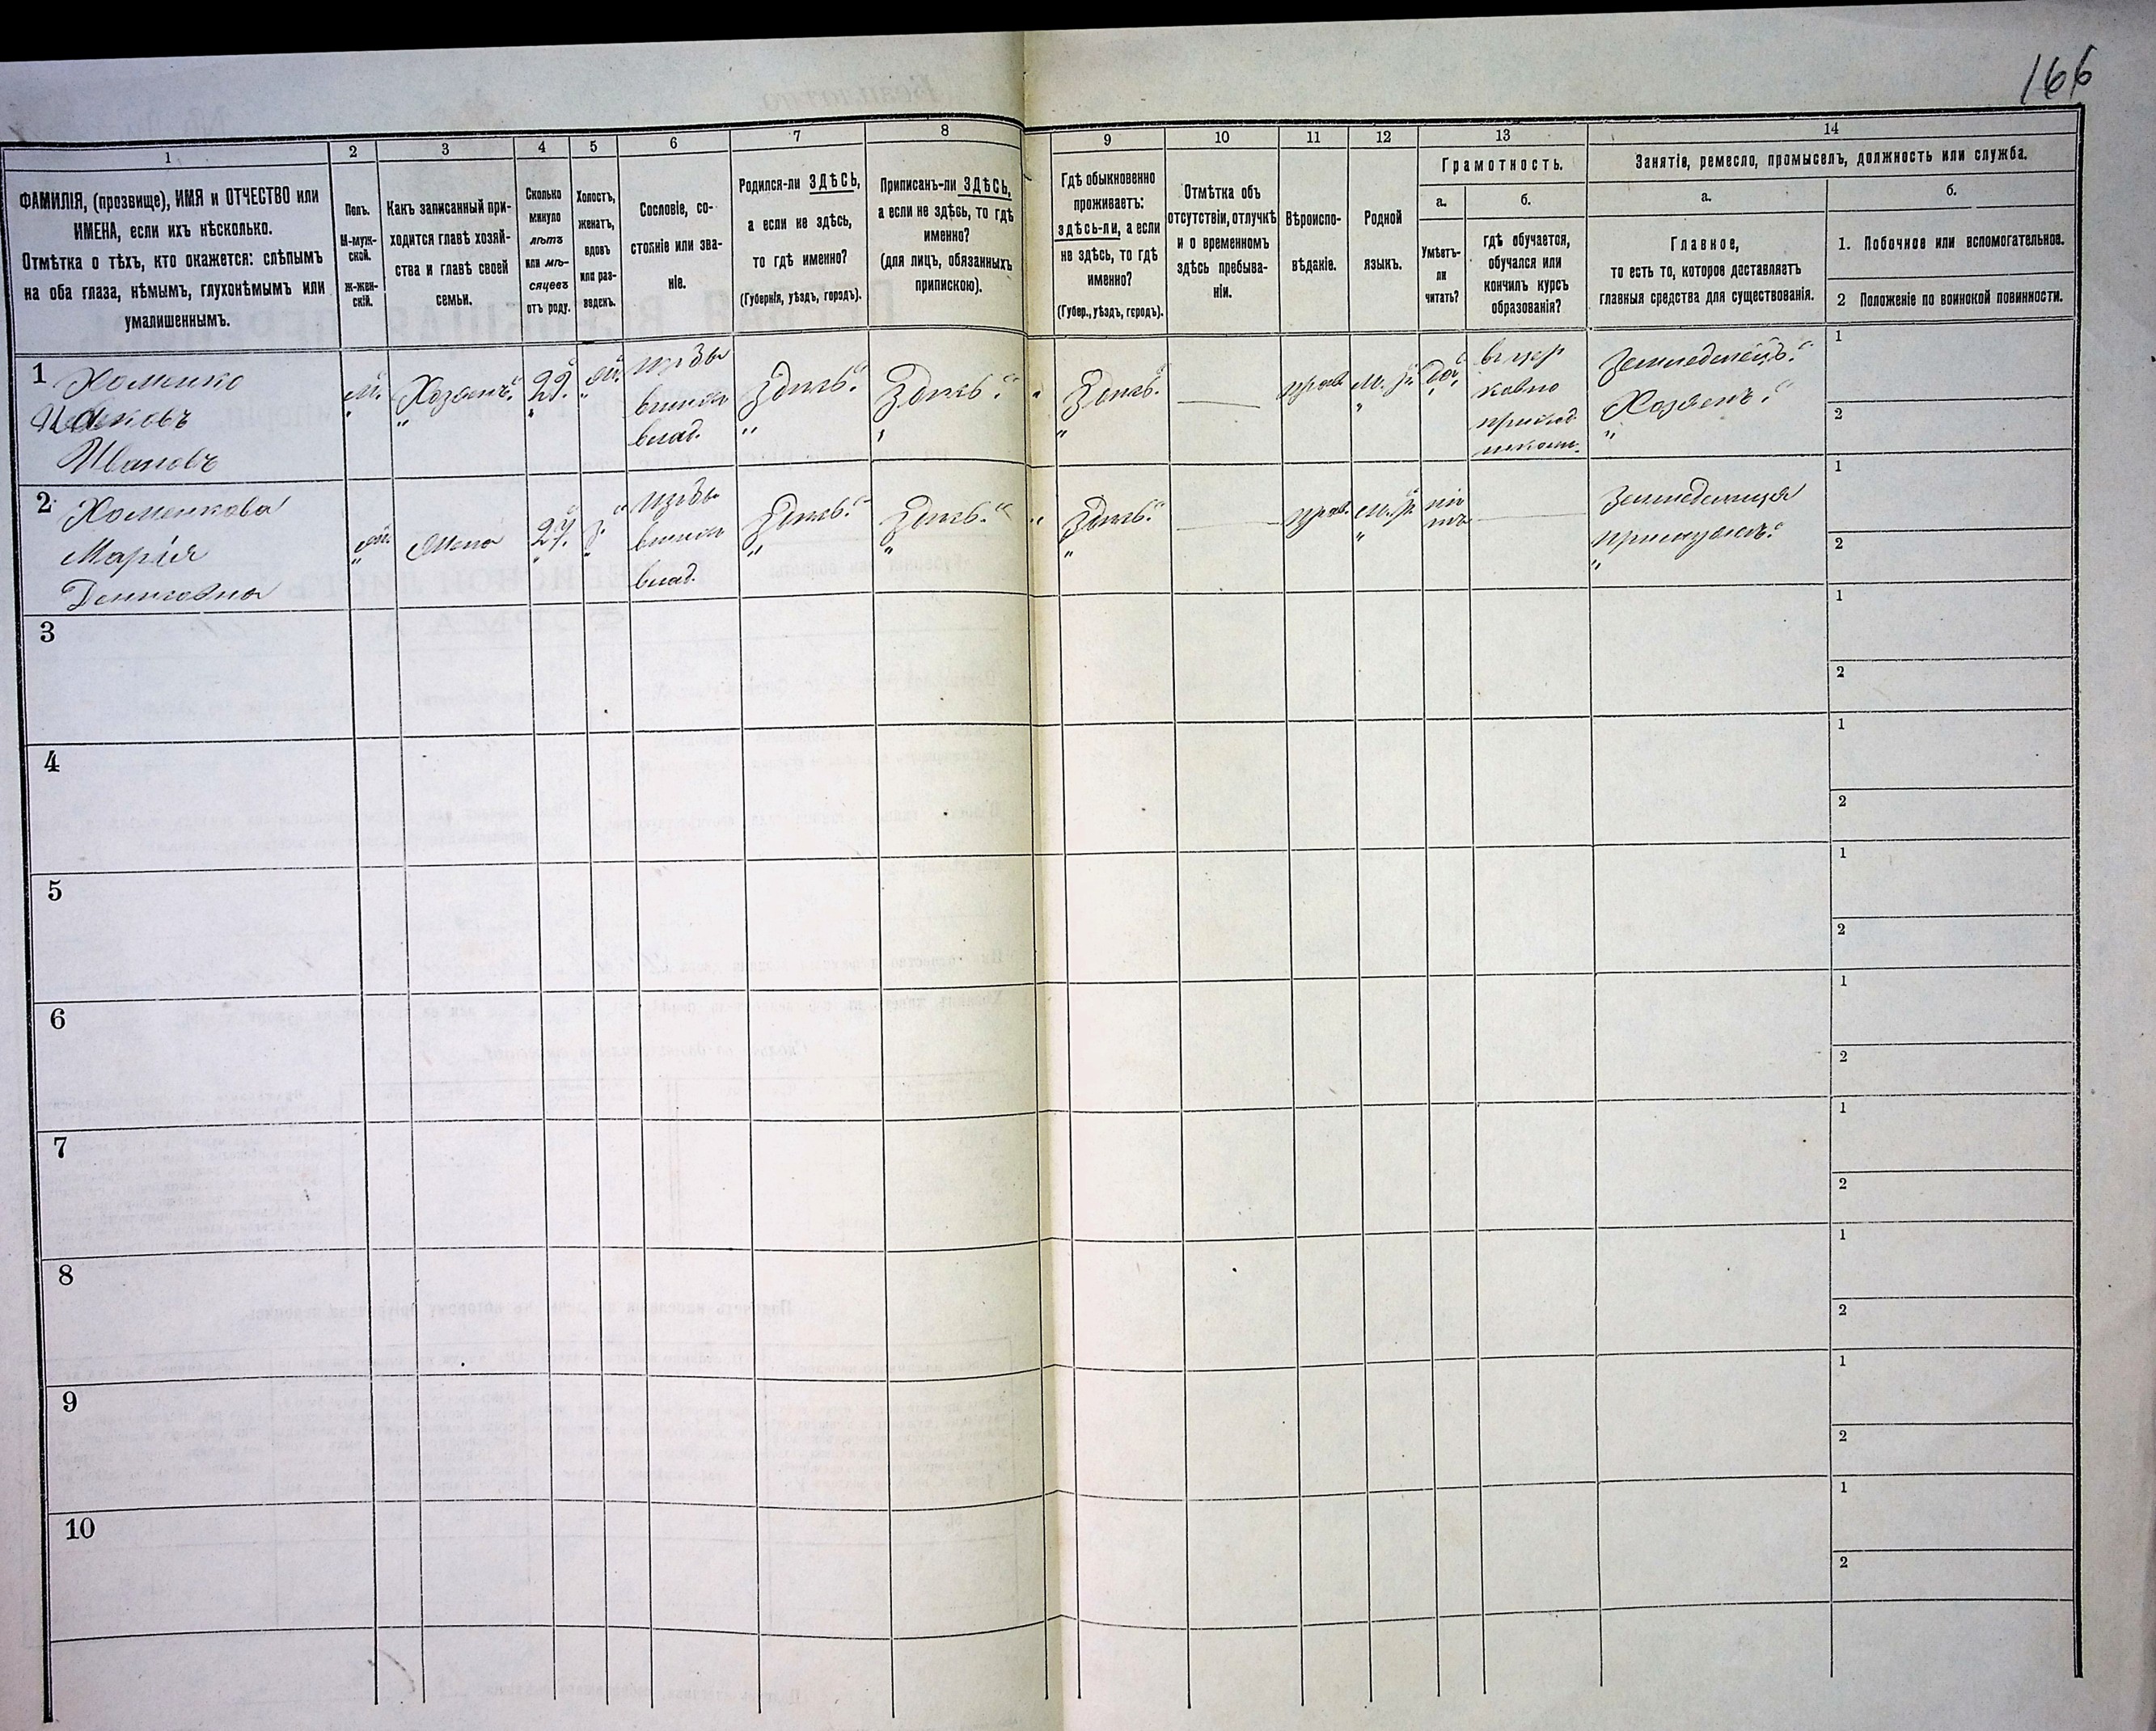 166
1
2
3
4
5
6
7
8
9
10
11
12
13
14
ФАМИЛІЯ, (прозвище), ИМЯ и ОТЧЕСТВО или
ИМЕНА, если ихъ нѣсколько.
Отмѣтка о тѣхъ, кто окажется: слѣпымъ
на оба глаза, нѣмымъ, глухонѣмымъ или
умалишеннымъ.
Полъ.
М-муж-
ской.
Ж-жен-
скій.
Какъ записанный при-
ходится главѣ хозяй-
ства и главѣ своей
семьи.
Сколько
минуло
лѣтъ
или мѣ-
сяцевъ
отъ роду.
Холостъ,
женатъ,
вдовъ
или раз-
веденъ.
Сословіе, со-
стояніе или зва-
ніе.
Родился-ли ЗДѢСЬ,
а если не здѣсь,
то гдѣ именно?
(Губернія, уѣздъ, городъ).
Приписанъ-ли ЗДѢСЬ,
а если не здѣсь, то гдѣ
именно?
(для лицъ, обязанныхъ
припискою).
Гдѣ обыкновенно
проживаетъ:
здѣсь-ли, а если
не здѣсь, то гдѣ
именно?
(Губер., уѣздъ, городъ).
Отмѣтка объ
отсутствіи, отлучкѣ
и о временномъ
здѣсь пребыва-
ніи.
Вѣроиспо-
вѣданіе.
Родной
языкъ.
Грамотность.
а.
Умѣетъ-
ли
читать?
б.
гдѣ обучается,
обучался или
кончилъ курсъ
образованія?
Занятіе, ремесло, промыселъ, должность или служба.
а.
Главное,
то есть то, которое доставляетъ
главныя средства для существованія.
б.
1. Побочное или вспомогательное.
2 Положеніе по воинской повинности.
1
Хоменко
Ивановъ
м.
Хозяинъ
29
владѣ.
Здѣсь
Здѣсь
Здѣсь
прав.
да
в цер
ковно
приход
школ.
Земледѣлецъ
Хозяинъ
1
2
2
Хоменкова
Марія
Денисовна
жена
27
влад.
Здѣсь
Здѣсь
Здѣсь
прав.
нѣ
тъ
Земледѣлица
1
2
3
1
2
4
1
2
5
1
2
6
1
2
7
1
2
8
1
2
9
1
2
10
1
2